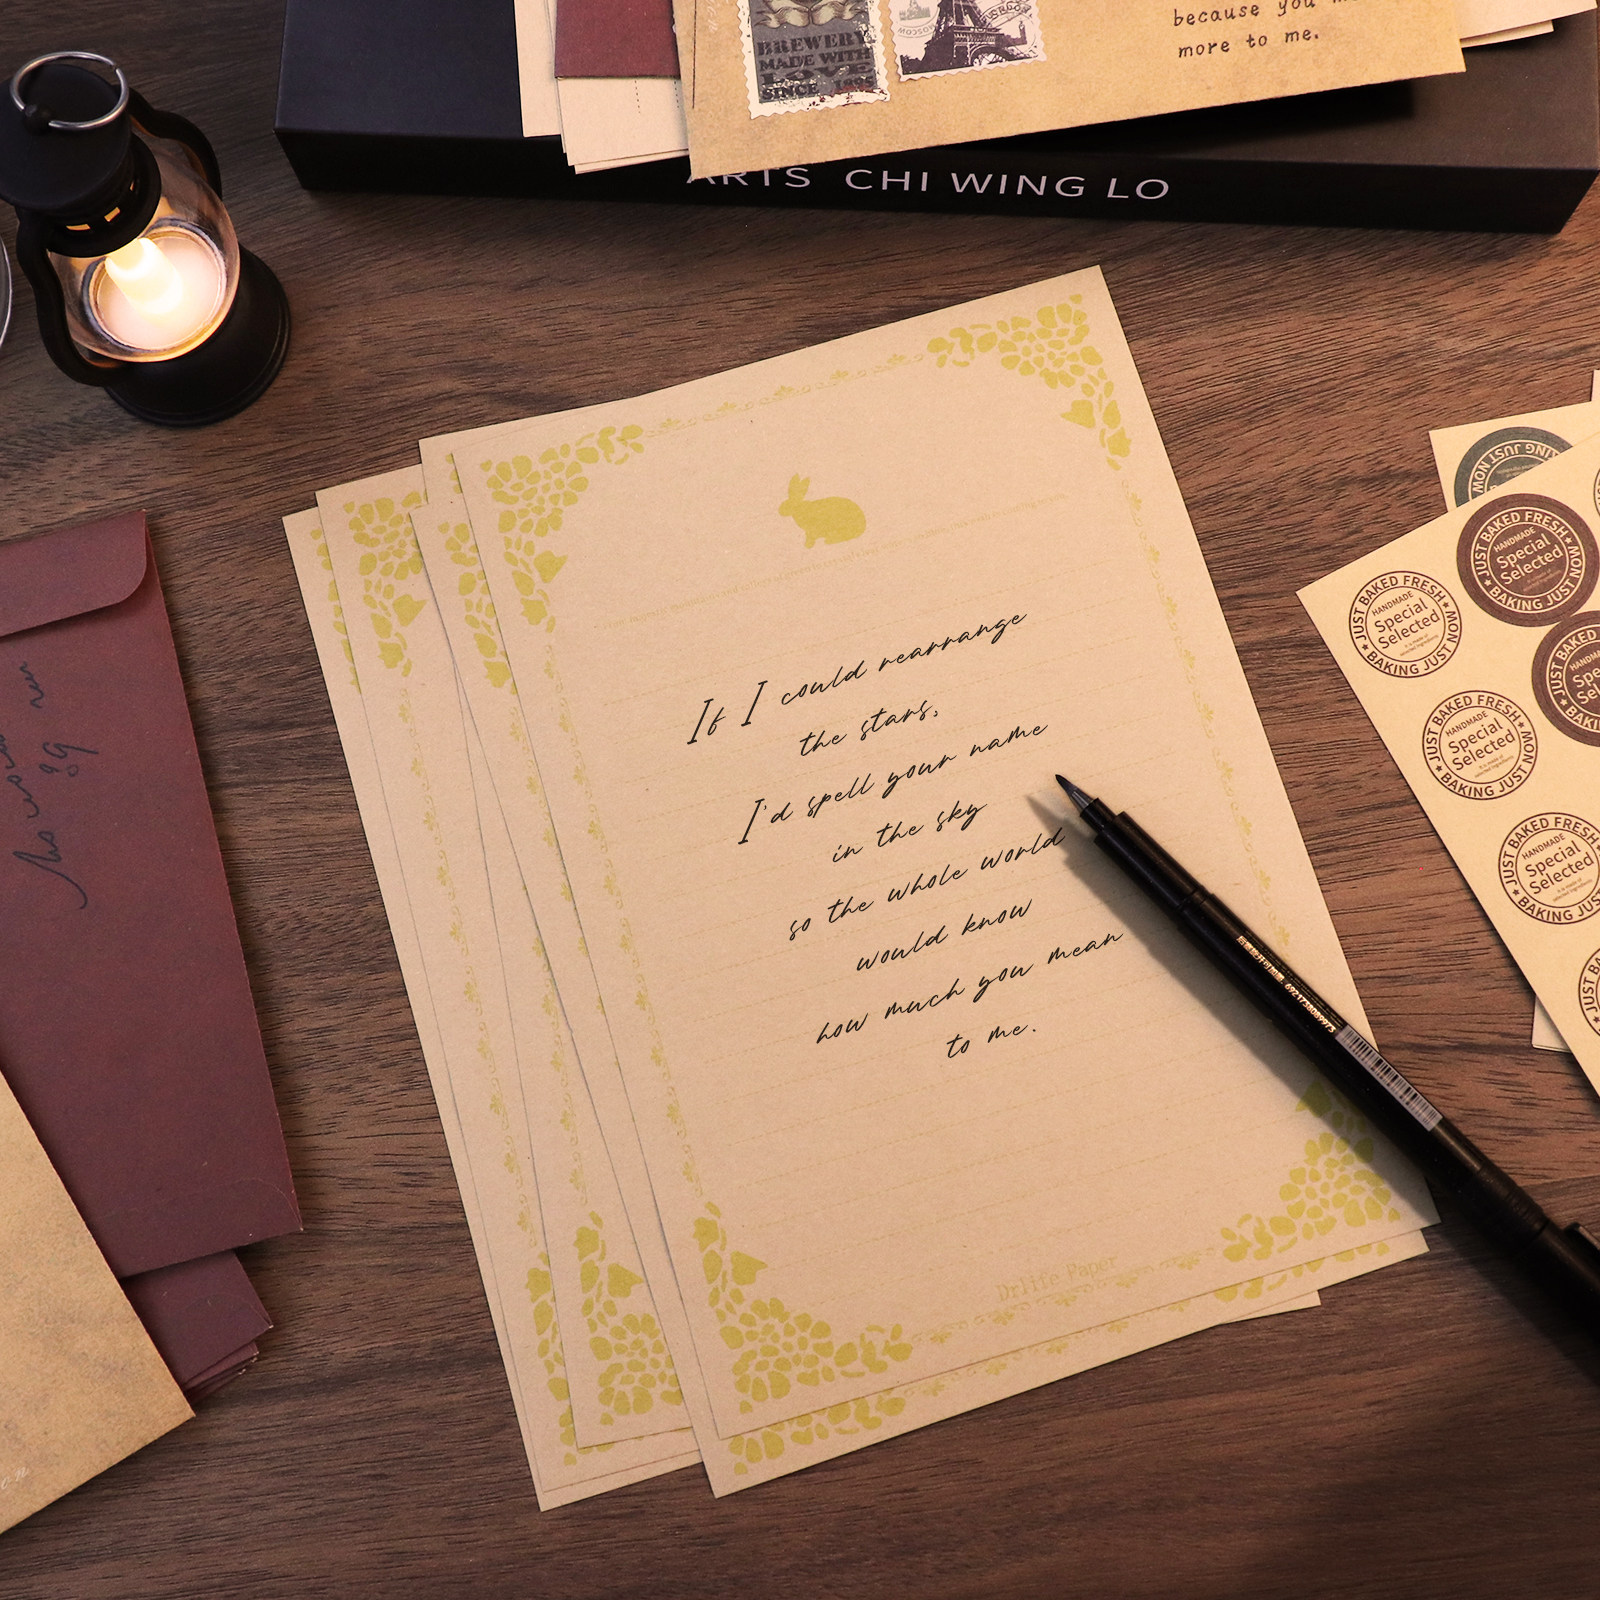 BREWERY
MADE WITH
LOVE
SINCE 1995
MOSCOW
because you
more to me.
ARTS CHI WING LO
If I could rearrange
the stars,
I'd spell your name
in the sky
so the whole world
would know
how much you mean
to me.
DrLife Paper
6921738089975
JUST BAKED FRESH
HANDMADE
Special
Selected
BAKING JUST NOW
JUST BAKED FRESH
HANDMADE
Special
Selected
BAKING JUST NOW
JUST BAKED
BAKING
JUST BAKED FRESH
HANDMADE
Special
Selected
BAKING JUST NOW
JUST BAKED FRESH
HANDMADE
Special
Selected
BAKING JUST NOW
JUST BAKED